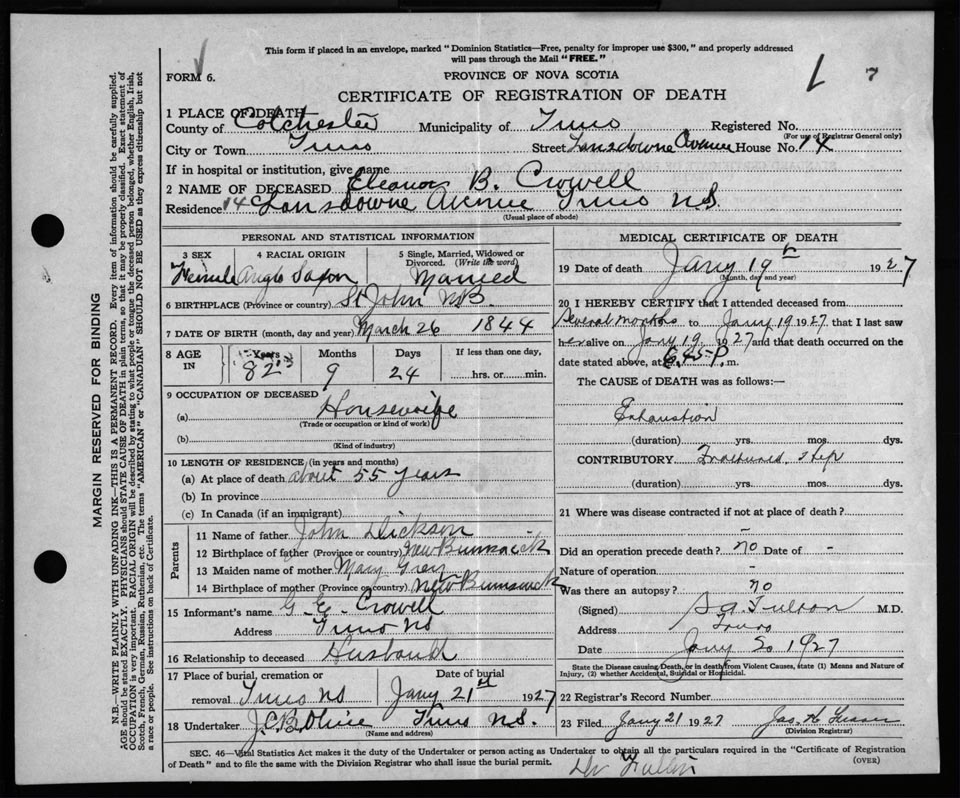 This form if placed in an envelope, marked "Dominion Statistics—Free, penalty for improper use $300," and properly addressed
will pass through the Mail "FREE."
FORM 6.
PROVINCE OF NOVA SCOTIA
7
CERTIFICATE OF REGISTRATION OF DEATH
1 PLACE OF DEATH
County of Colchester Municipality of Truro Registered No.
(For use of Registrar General only)
City or Town Truro Street Lansdowne Avenue House No. 14
If in hospital or institution, give name
2 NAME OF DECEASED Eleanor B. Crowell
Residence 14 Lansdowne Avenue Truro N.S.
(Usual place of abode)
PERSONAL AND STATISTICAL INFORMATION
3 SEX 4 RACIAL ORIGIN 5 Single, Married, Widowed or
Divorced. (Write the word)
Female Anglo Saxon Married
6 BIRTHPLACE (Province or country) St John N.B.
7 DATE OF BIRTH (month, day and year) March 26 1844
8 AGE IN Years Months Days If less than one day,
82 9 24 hrs. or min.
9 OCCUPATION OF DECEASED
(a) Housewife
(Trade or occupation or kind of work)
(b)
(Kind of industry)
10 LENGTH OF RESIDENCE (in years and months)
(a) At place of death about 55 years
(b) In province
(c) In Canada (if an immigrant)
Parents
11 Name of father John Dickson
12 Birthplace of father (Province or country) New Brunswick
13 Maiden name of mother Mary Grey
14 Birthplace of mother (Province or country) New Brunswick
15 Informant's name G. E. Crowell
Address Truro NS
16 Relationship to deceased Husband
17 Place of burial, cremation or Date of burial
removal Truro NS Jany 21st 1927
18 Undertaker Truro N.S.
(Name and address)
MEDICAL CERTIFICATE OF DEATH
19 Date of death Jany 19th 1927
(Month, day and year)
20 I HEREBY CERTIFY that I attended deceased from
Several months to Jany 19 1927 that I last saw
her alive on Jany 19 1927 and that death occurred on the
date stated above, at P. m.
The CAUSE of DEATH was as follows:—
Exhaustion
(duration) yrs. mos. dys.
CONTRIBUTORY Fractured Hip
(duration) yrs. mos. dys.
21 Where was disease contracted if not at place of death?
-
Did an operation precede death? no Date of -
Nature of operation -
Was there an autopsy? no
(Signed) M.D.
Address Truro
Date Jany 20 1927
State the Disease causing Death, or in death from Violent Causes, state (1) Means and Nature of
Injury, (2) whether Accidental, Suicidal or Homicidal.
22 Registrar's Record Number
23 Filed Jany 21 1927
(Division Registrar)
SEC. 46—Vital Statistics Act makes it the duty of the Undertaker or person acting as Undertaker to obtain all the particulars required in the "Certificate of Registration
of Death" and to file the same with the Division Registrar who shall issue the burial permit.
(OVER)
MARGIN RESERVED FOR BINDING
N.B.—WRITE PLAINLY WITH UNFADING INK—THIS IS A PERMANENT RECORD. Every item of information should be carefully supplied.
AGE should be stated EXACTLY. PHYSICIANS should STATE CAUSE OF DEATH in plain terms, so that it may be properly classified. Exact statement of
OCCUPATION is very important. RACIAL ORIGIN will be described by stating to what people or tongue the deceased person belonged, whether English, Irish,
Scotch, French, German, Russian, Ruthenian, etc. The terms "AMERICAN" or "CANADIAN" SHOULD NOT BE USED as they express citizenship but not
a race or people. See instructions on back of Certificate.